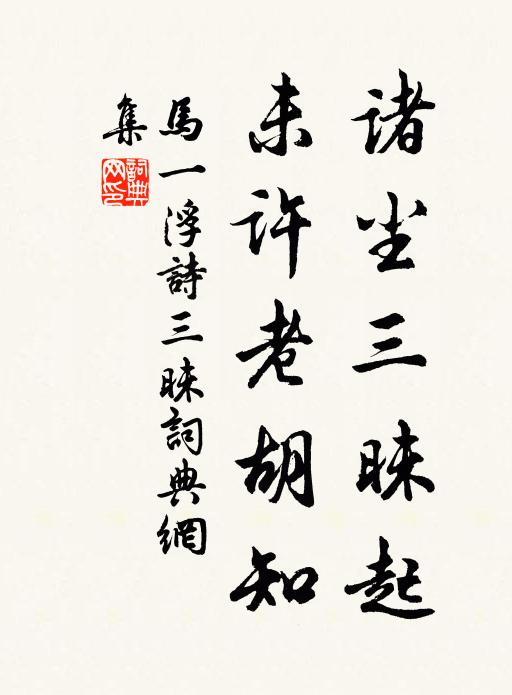 諸尘三昧起
未許老胡知
馬一浮詩三昧詞典網
集
詞典网印